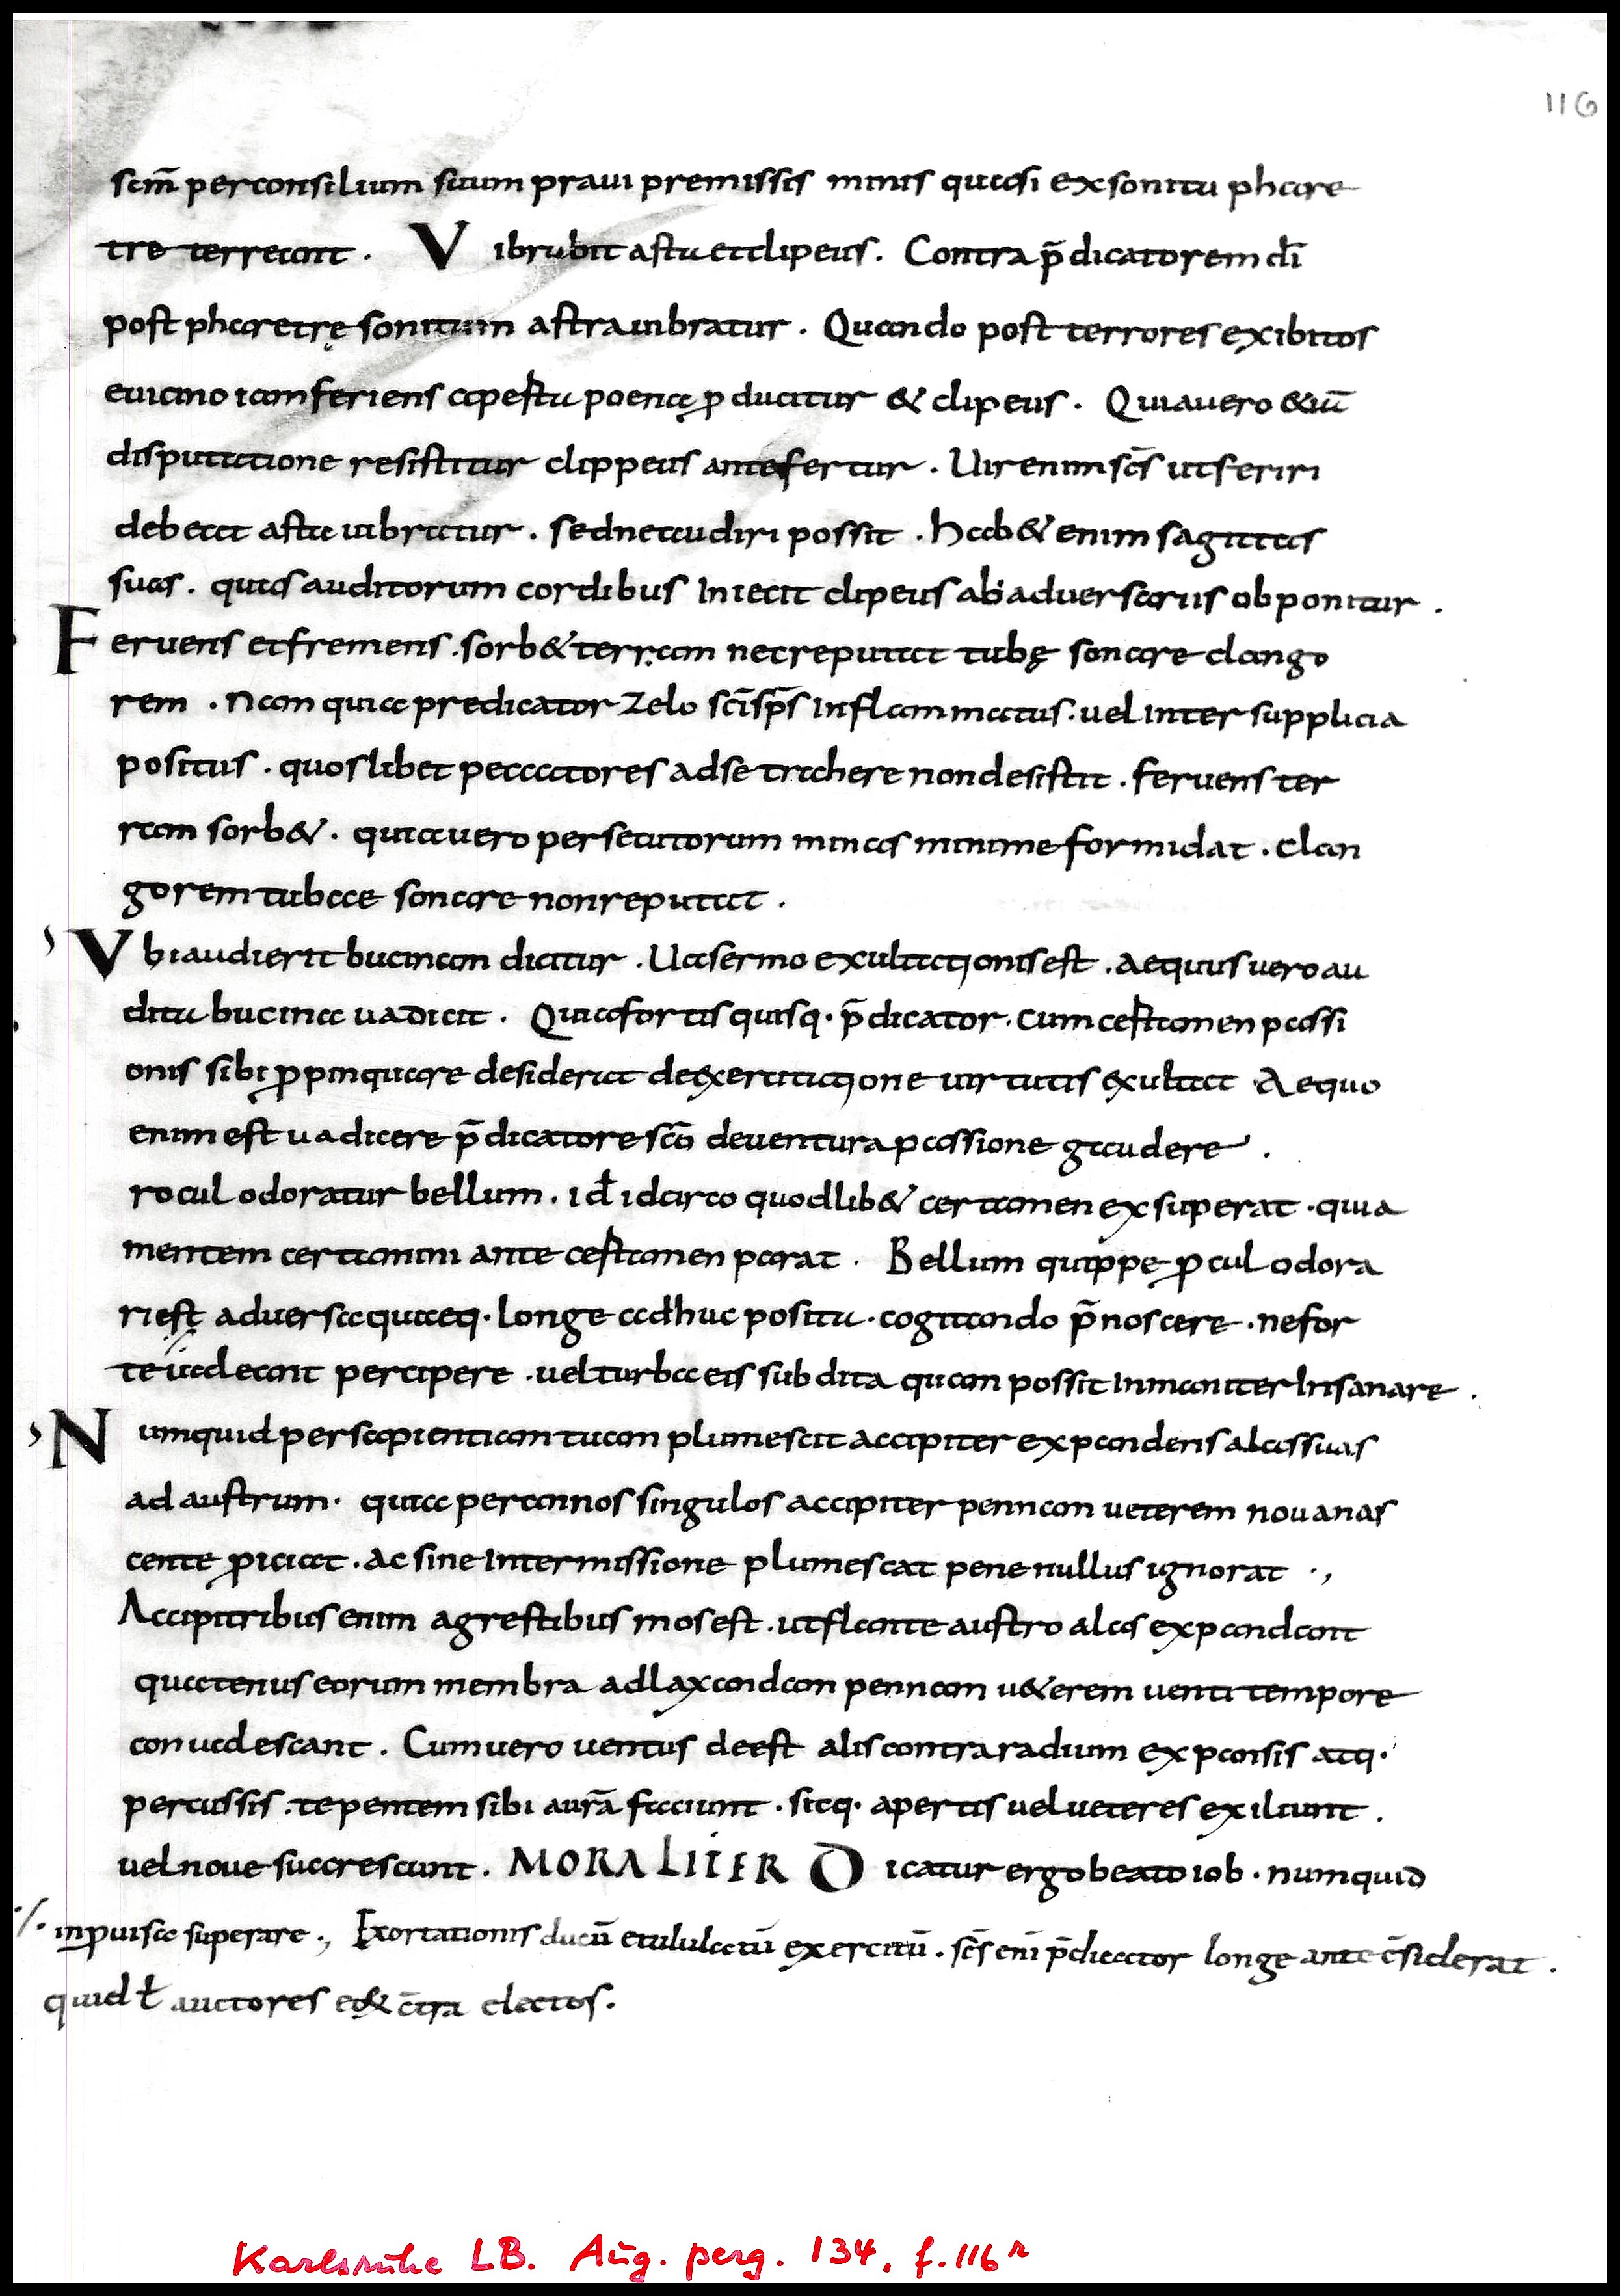 116
scm̄ per consilium suum praui premissis minis quasi ex sonitu phare
tre terreant . Vibrabit asta et clipeus . Contra p̄dicatorem dī
post pharetrę sonitum astra uibratur . Quando post terrores exibitos
euicino iam feriens apesta poenaę ꝓducitur & clipeus . Quia uero & iū
disputatione resistitur clippeus antefertur . Uir enim scs̄ ut feriri
debeat asta uibratur . sed ne audiri possit . hab& enim sagittas
suas . quas auditorum cordibus iniecit clipeus ab aduersariis obponitur .
Feruens et fremens . sorb& terram nec reputat tubę sonare clango
rem . Nam quia predicator zelo scī sp̄s inflammatus . uel inter supplicia
positus . quoslibet peccatores ad se trahere non desistit . feruens ter
ram sorb& . quia uero persecutorum minas minime formidat . clan
gorem tubae sonare non reputat .
Vbi audierit bucinam dicitur . Ua sermo exultationis est . Aequus uero au
ditu bucina ua dicit . Quia fortis quisq· p̄dicator . cum cestamen passi
onis sibi ꝓpinquare desiderat de exercitatione uirtutis exultat Aequo
enim est ua dicere p̄dicatore scō de uentura passione gaudere .
rocul odoratur bellum . id̄ idcirco quodlib& certamen exsuperat . quia
mentem certamini ante cestamen parat . Bellum quippe ꝓcul odora
ri est aduersa quaeq· longe adhuc positu . cogitando p̄noscere . ne for
te ualeant percipere . uel turba eis subdita quam possit inmaniter insanare .
Numquid per sapientiam tuam plumescit accipiter expandens alas suas
ad austrum . quia per annos singulos accipiter pennam ueterem noua nas
cente ꝓiciat . ac sine intermissione plumescat pene nullus ignorat .,
Accipitribus enim agrestibus mos est . ut flante austro alas expandant
quatenus eorum membra ad laxandam pennam u&erem uenti tempore
conualescant . Cum uero uentus deest alis contra radium expansis atq·
percussis . tepentem sibi aurā faciunt . sicq· apertis uel ueteres exiliunt .
uel noue succrescunt . MORALITER Dicatur ergo beato iob . numquid
·/· inꝓuisa superare ., Exortationis ducū et ululatū exercitū . scs̄ enī p̄dicator longe ante c̄siderat .
quid ł auctores eo& c̄tra electos .
Karlsruhe LB. Aug. perg. 134, f. 116r